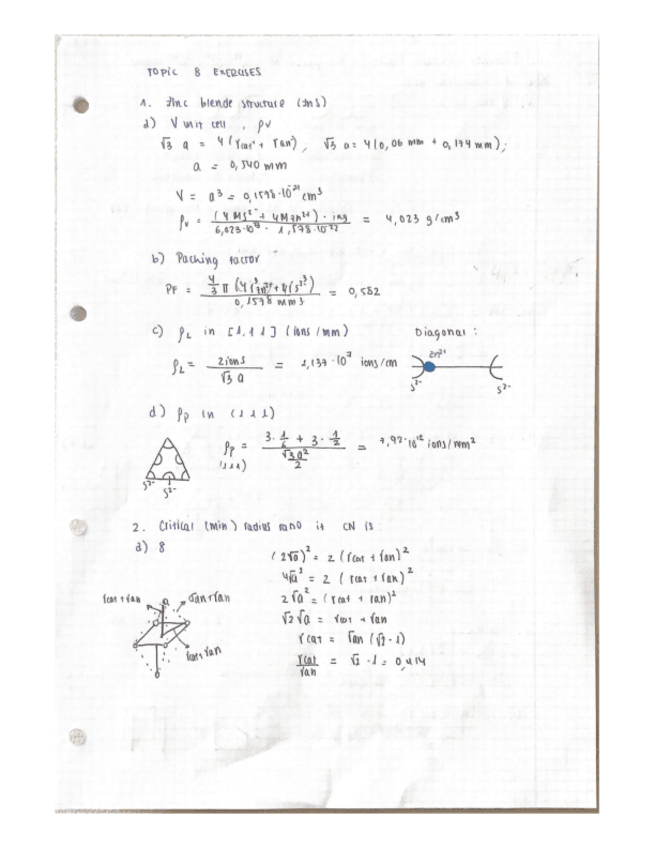 TOPIC 8 EXERCISES
1. Zinc blende structure (ZnS)
a) V unit cell, ρv
√3 a = 4(rcat + ran), √3 a = 4(0,06 mm + 0,174 mm);
a = 0,540 mm
V = a³ = 0,1578·10⁻²¹ cm³
ρv = (4 MS²⁻ + 4 MZn²⁺) · / 6,023·10²³ · 1,578·10⁻²² = 4,023 g/cm³
b) Packing factor
PF = 4/3 π (4 r³Zn²⁺ + 4 rS²⁻³) / 0,1578 mm³ = 0,582
c) ρL in [1,1,1] (ions/mm) Diagonal:
ρL = 2 ions / √3 a = 2,137·10⁷ ions/cm
Zn²⁺
S²⁻ S²⁻
d) ρp in (1 1 1)
ρp (111) = 3·1/6 + 3·1/2 / √3a²/2 = 7,92·10¹² ions/mm²
S²⁻ S²⁻
2. Critical (min) radius ratio if CN is
a) 8
(2√a)² = 2 (rcat + ran)²
4√a² = 2 (rcat + ran)²
2√a² = (rcat + ran)²
√2 √a = rcat + ran
rcat = ran (√2 - 1)
rcat/ran = √2 - 1 = 0,414
rcat + ran ran + ran
rcat + ran